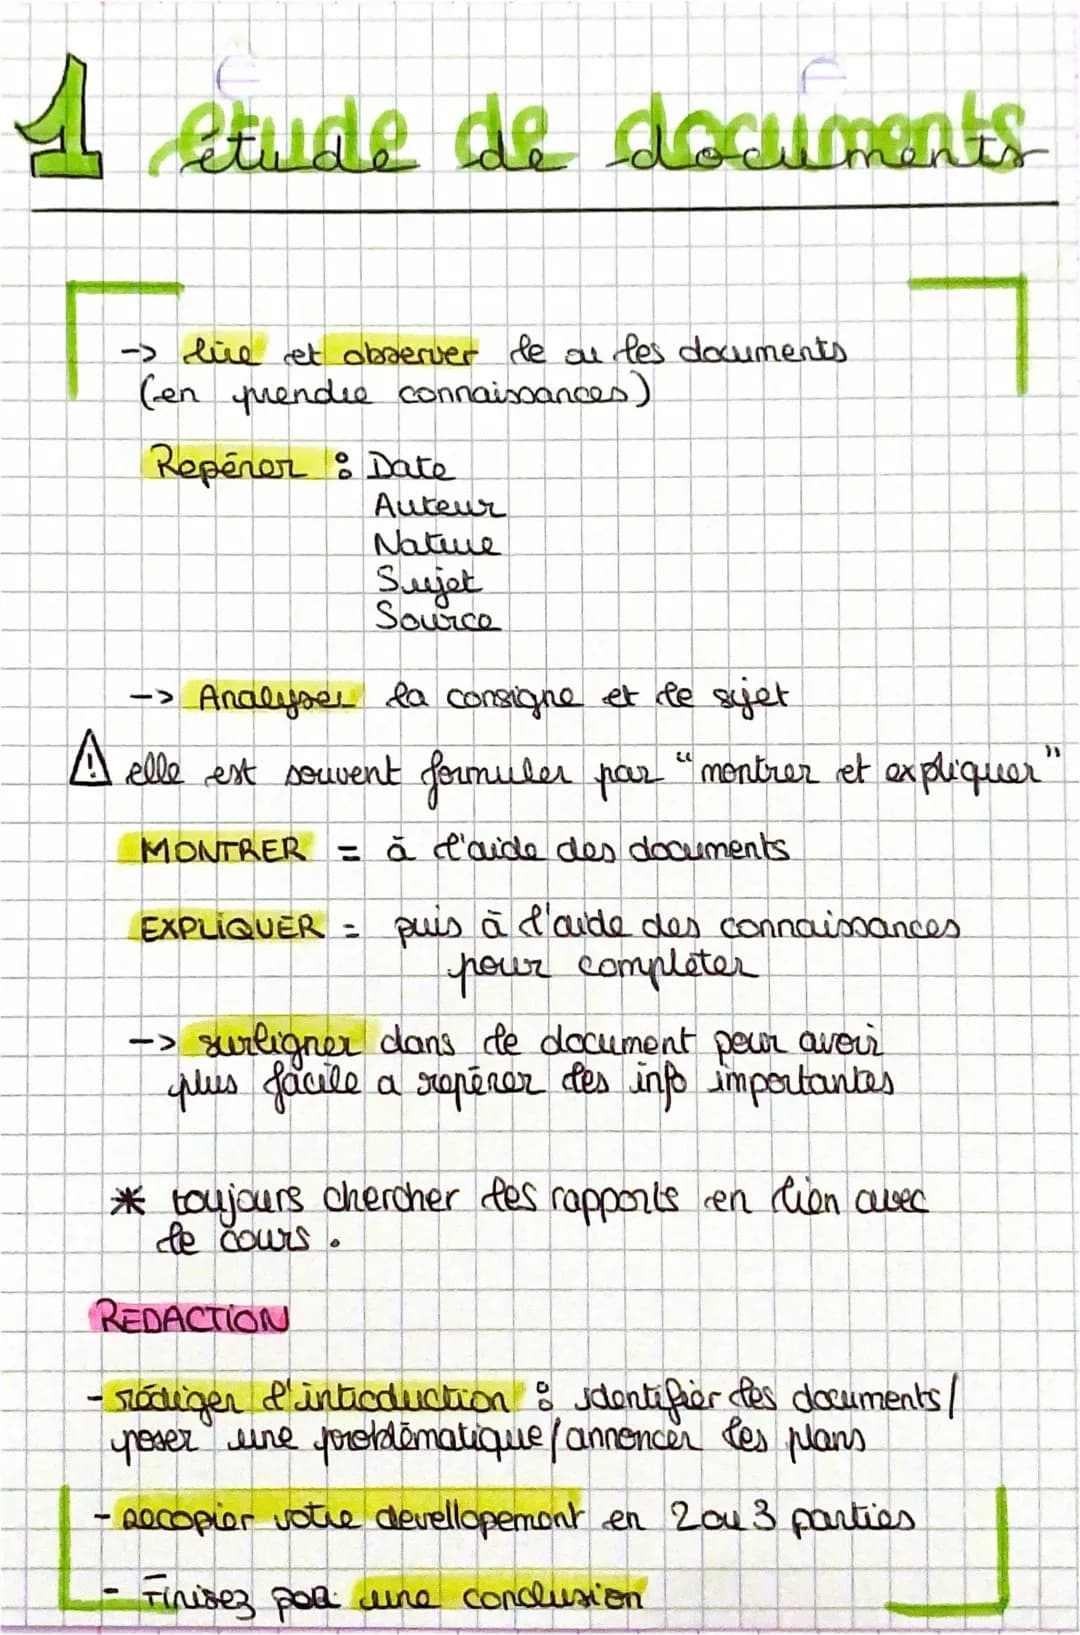 1 étude de documents
-> lire et observer le ou les documents
(en prendre connaissances)
Repérer : Date
Auteur
Nature
Sujet
Source
-> Analyser la consigne et le sujet
⚠ elle est souvent formuler par "montrer et expliquer"
MONTRER = à l'aide des documents
EXPLIQUER = puis à l'aide des connaissances
pour compléter
-> surligner dans le document pour avoir
plus facile a repérer les info importantes
* toujours chercher les rapports en lien avec
le cours.
REDACTION
- rédiger l'introduction : identifier les documents/
poser une problématique/annoncer les plans
- Recopier votre devellopement en 2 ou 3 parties
- Finisez par une conclusion